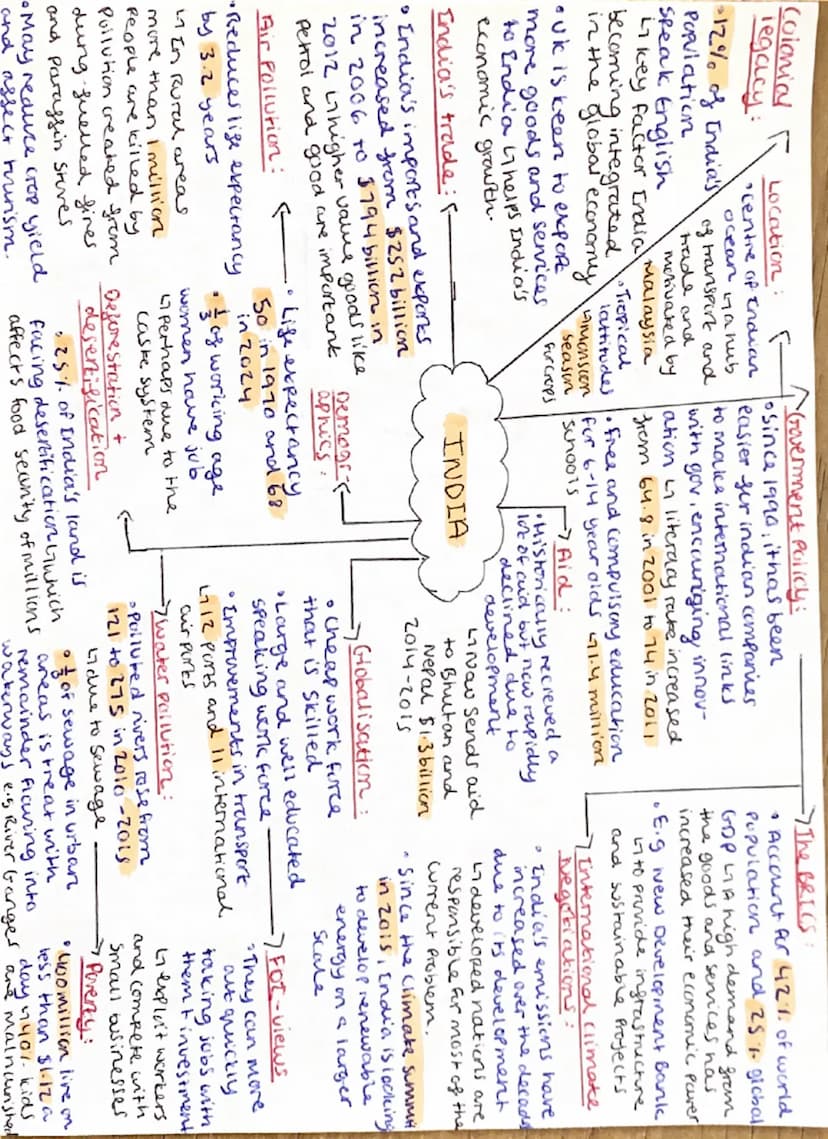 Colonial
legacy:
• 12% of India's
population
speak English
↳ Key factor India
becoming integrated
in the global economy
• UK is keen to export
more goods and services
to India ↳ helps India's
economic growth.
Location:
• centre of Indian
ocean ↳ a hub
of transport and
trade and
motivated by
Malaysia
• Tropical
latitudes
↳ monsoon
season
for crops
Government Policy:
• Since 1990, it has been
easier for indian companies
to make international links
with gov. encouraging innov-
ation ↳ literacy rate increased
from 64.8 in 2001 to 74 in 2011
• Free and compulsory education
for 6-14 year olds ↳ 1.4 million
schools
The BRICS:
• Account for 42% of world
population and 25% global
GDP ↳ A high demand from
the goods and services has
increased their economic power
• E.g New Development Bank
↳ to provide infrastructure
and sustainable projects
International climate
Negotiations:
• India's emissions have
increased over the decades
due to its development
↳ developed nations are
responsible for most of the
current problem.
• Since the climate summit
in 2015 India is looking
to develop renewable
energy on a larger
scale
Aid:
• Historically recieved a
lot of aid but now rapidly
declined due to
development
↳ Now sends aid
to Bhutan and
Nepal $1.3 billion
2014-2015
INDIA
India's trade:
• India's imports and exports
increased from $252 billion
in 2006 to $794 billion in
2012 ↳ higher value goods like
petrol and good are important
Demogr-
aphics:
• Life expectancy
50 in 1970 and 68
in 2024
• 1/3 of working age
women have job
↳ perhaps due to the
caste system
Globalisation:
• Cheap work force
that is skilled
• Large and well educated
speaking work force
• Improvements in transport
↳ 12 ports and 11 international
air ports
FDI-views
• They can more
out quickly
taking jobs with
them + investment
↳ exploit workers
and compete with
small businesses
Air pollution:
• Reduces life expectancy
by 3.2 years
↳ In rural areas
more than 1 million
people are killed by
pollution created from
dung-fuelled fires
and paraffin stoves
• May reduce crop yield
and affect tourism.
Deforestation +
desertification
• 25% of India's land is
facing desertification ↳ which
affects food security of millions
Water pollution:
• Polluted rivers rose from
121 to 275 in 2010-2015
↳ due to sewage
• 1/3 of sewage in urban
areas is treat with
remainder flowing into
waterways e.g River Ganges
Poverty:
• 400 million live on
less than $1.12 a
day ↳ 40% kids
are malnurished